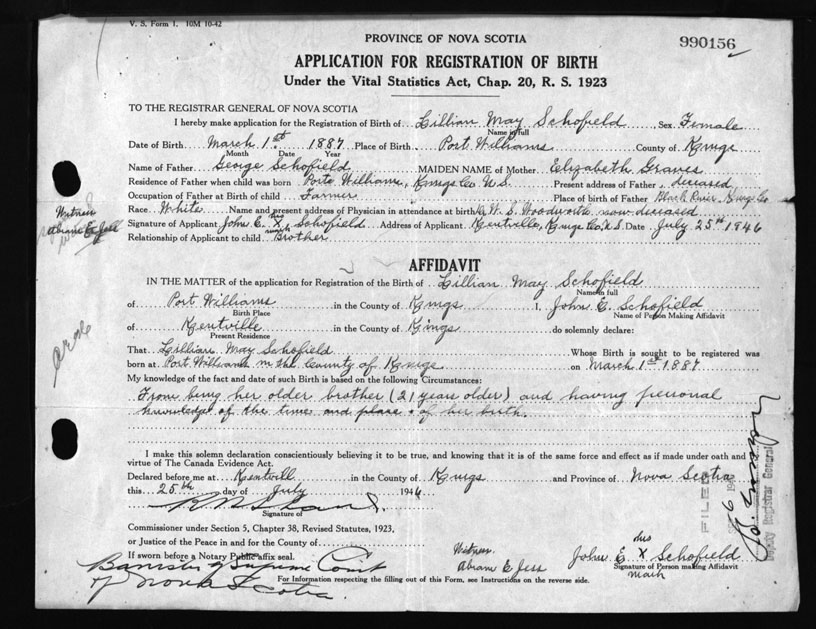 V. S. Form 1. 10M 10-42
PROVINCE OF NOVA SCOTIA
990156
APPLICATION FOR REGISTRATION OF BIRTH
Under the Vital Statistics Act, Chap. 20, R. S. 1923
TO THE REGISTRAR GENERAL OF NOVA SCOTIA
I hereby make application for the Registration of Birth of Lillian May Schofield, Sex Female
Name in full
Date of Birth March 1st 1887 Place of Birth Port Williams County of Kings
Month Date Year
Name of Father George Schofield MAIDEN NAME of Mother Elizabeth Graves
Residence of Father when child was born Port Williams, Kings Co N.S. Present address of Father deceased
Occupation of Father at Birth of child Farmer Place of Birth of Father Black River Kings Co
Race White Name and present address of Physician in attendance at birth W. S. Woodworth now deceased
Witness
Abram E Jess
Signature of Applicant John E. his X mark Schofield Address of Applicant Kentville, Kings Co. N.S. Date July 25th 1946
Relationship of Applicant to child Brother
AFFIDAVIT
IN THE MATTER of the application for Registration of the Birth of Lillian May Schofield
Name in full
of Port Williams in the County of Kings I, John E. Schofield
Birth Place Name of Person Making Affidavit
of Kentville in the County of Kings do solemnly declare:
Present Residence
That Lillian May Schofield Whose Birth is sought to be registered was
born at Port Williams in the County of Kings on March 1st 1887
My knowledge of the fact and date of such Birth is based on the following Circumstances:
From being her older brother (21 years older) and having personal
knowledge of the time and place of her birth.
I make this solemn declaration conscientiously believing it to be true, and knowing that it is of the same force and effect as if made under oath and by
virtue of The Canada Evidence Act.
Declared before me at Kentvill in the County of Kings and Province of Nova Scotia
this 25th day of July 1946
Signature of
Commissioner under Section 5, Chapter 38, Revised Statutes, 1923,
or Justice of the Peace in and for the County of
If sworn before a Notary Public affix seal.
Barrister of Supreme Court
of Nova Scotia
Witness
Abram E Jess
his
John E. X Schofield
mark
Signature of Person making Affidavit
For Information respecting the filling out of this Form, see Instructions on the reverse side.
FILED
Deputy Registrar General